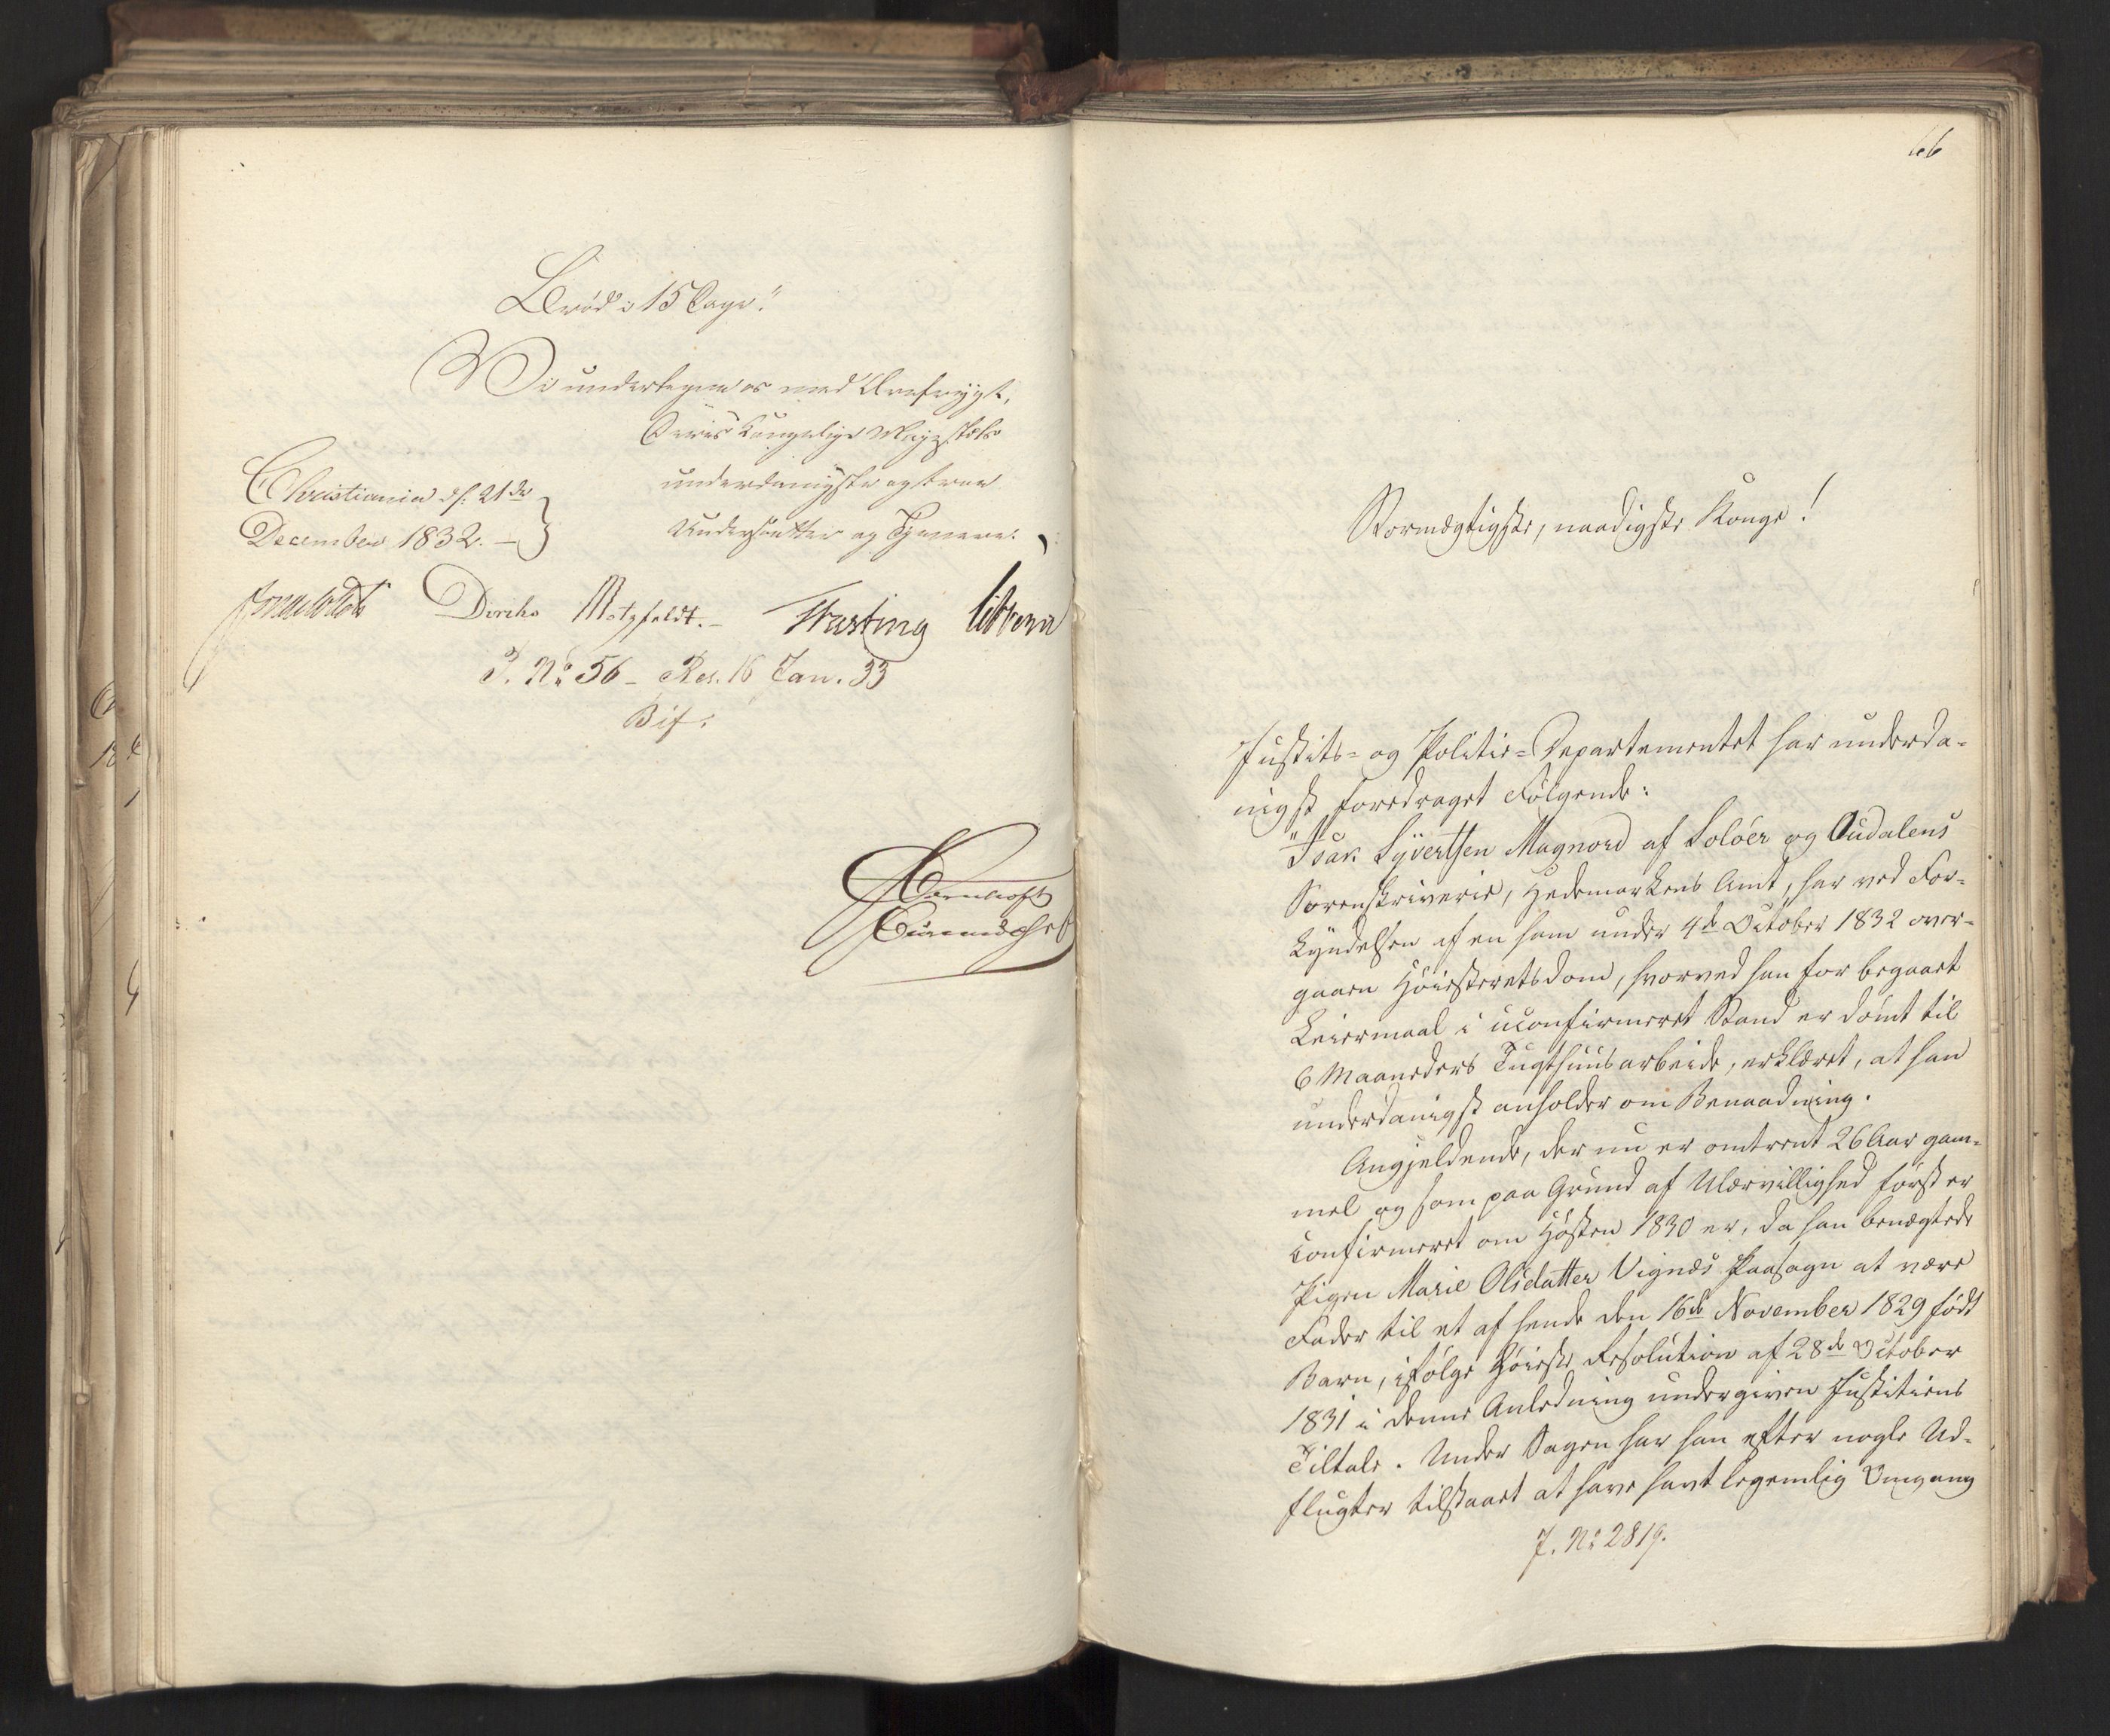 Brød i 15 Dage."
Vi undertegne os med Ærefrygt,
Deres Kongelige Majestæts
underdanigste og troe
Undersaatter og Tjenere.
Christiania d. 21de
December 1832. –
Diriks Motzfeldt. – Fasting Vibe
P. No 56 – Res. 16 Jan. 33
Bif.
66
Stormægtigste, naadigste Konge!
Justits- og Politie-Departementet har underda-
nigst foredraget Følgende:
"Isak Syvertsen Magnord af Soløer og Oudalens
Sorenskriverie, Hedemarkens Amt, har ved For-
kyndelsen af en ham under 4de October 1832 over-
gaaen Høiesteretsdom, hvorved han for begaaet
Leiermaal i uconfirmeret Stand er dømt til
6 Maaneders Tugthuusarbeide, erklæret, at han
underdanigst anholder om Benaadning.
Angjeldende, der nu er omtrent 26 Aar gam-
mel og som paa Grund af Ulærvillighed først er
confirmeret om Høsten 1830 er, da han benægtede
Pigen Marie Olsdatter Vignæs Paasagn at være
Fader til et af hende den 16de November 1829 født
Barn, ifølge Høieste Resolution af 28de October
1831 i denne Anledning undergiven Justitiens
Tiltale. Under Sagen har han efter nogle Ud-
flugter tilstaaet at have havt legemlig Omgang
J. No 2819.